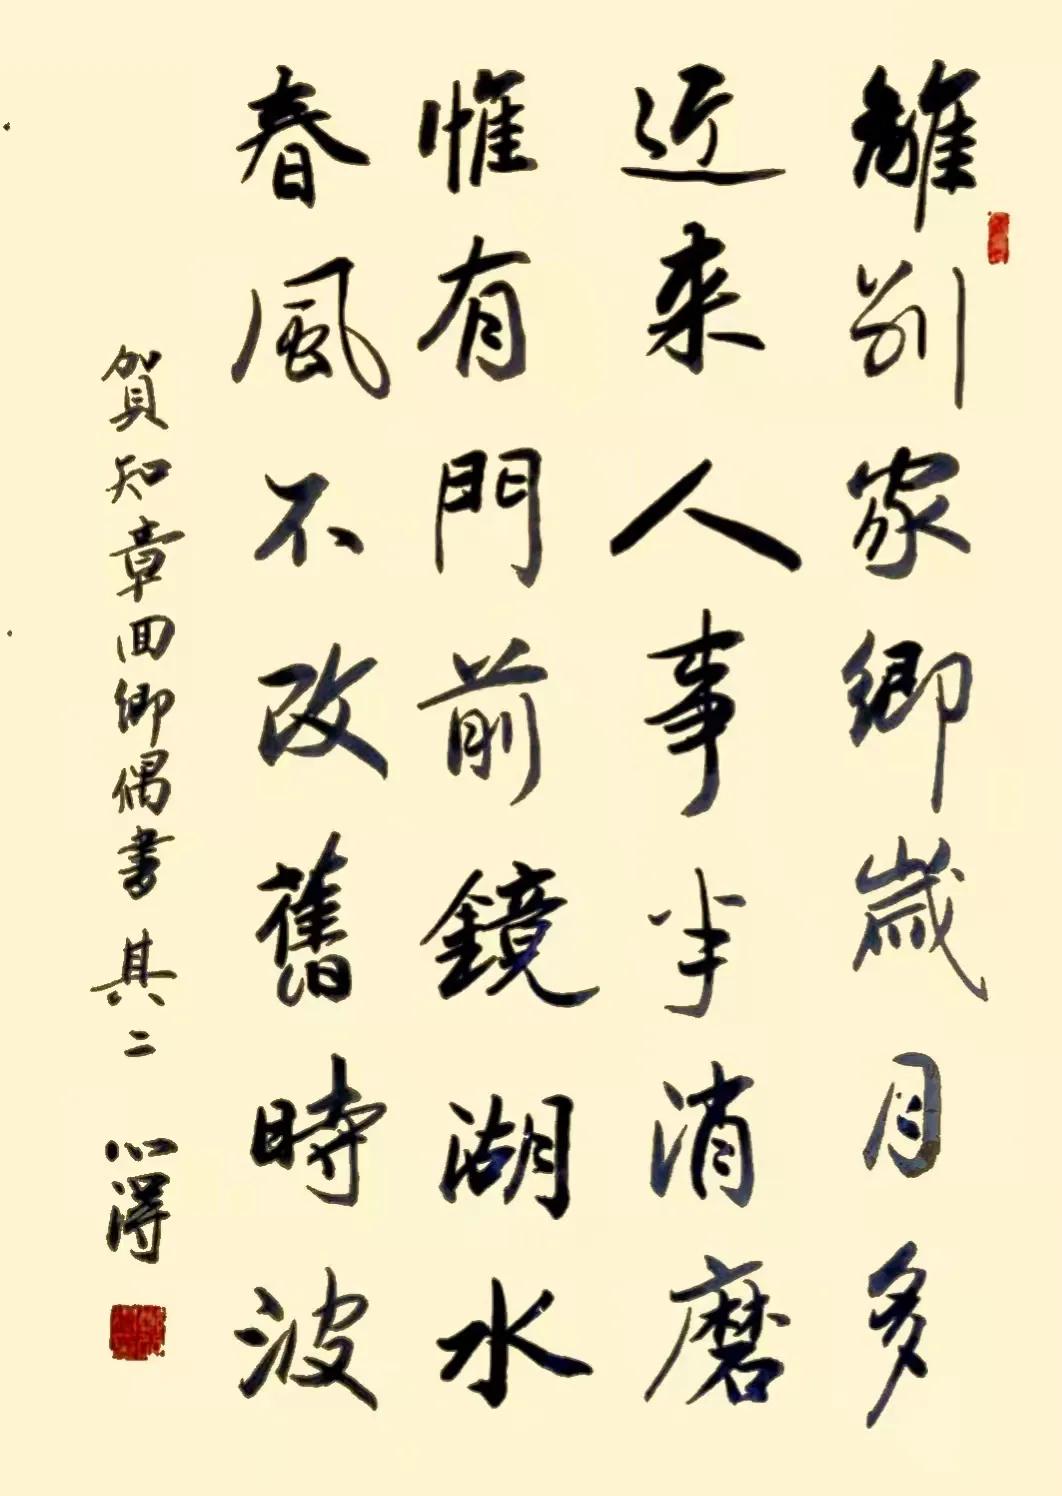 離別家鄉歲月多
近來人事半消磨
惟有門前鏡湖水
春風不改舊時波
賀知章回鄉偶書 其二 心得